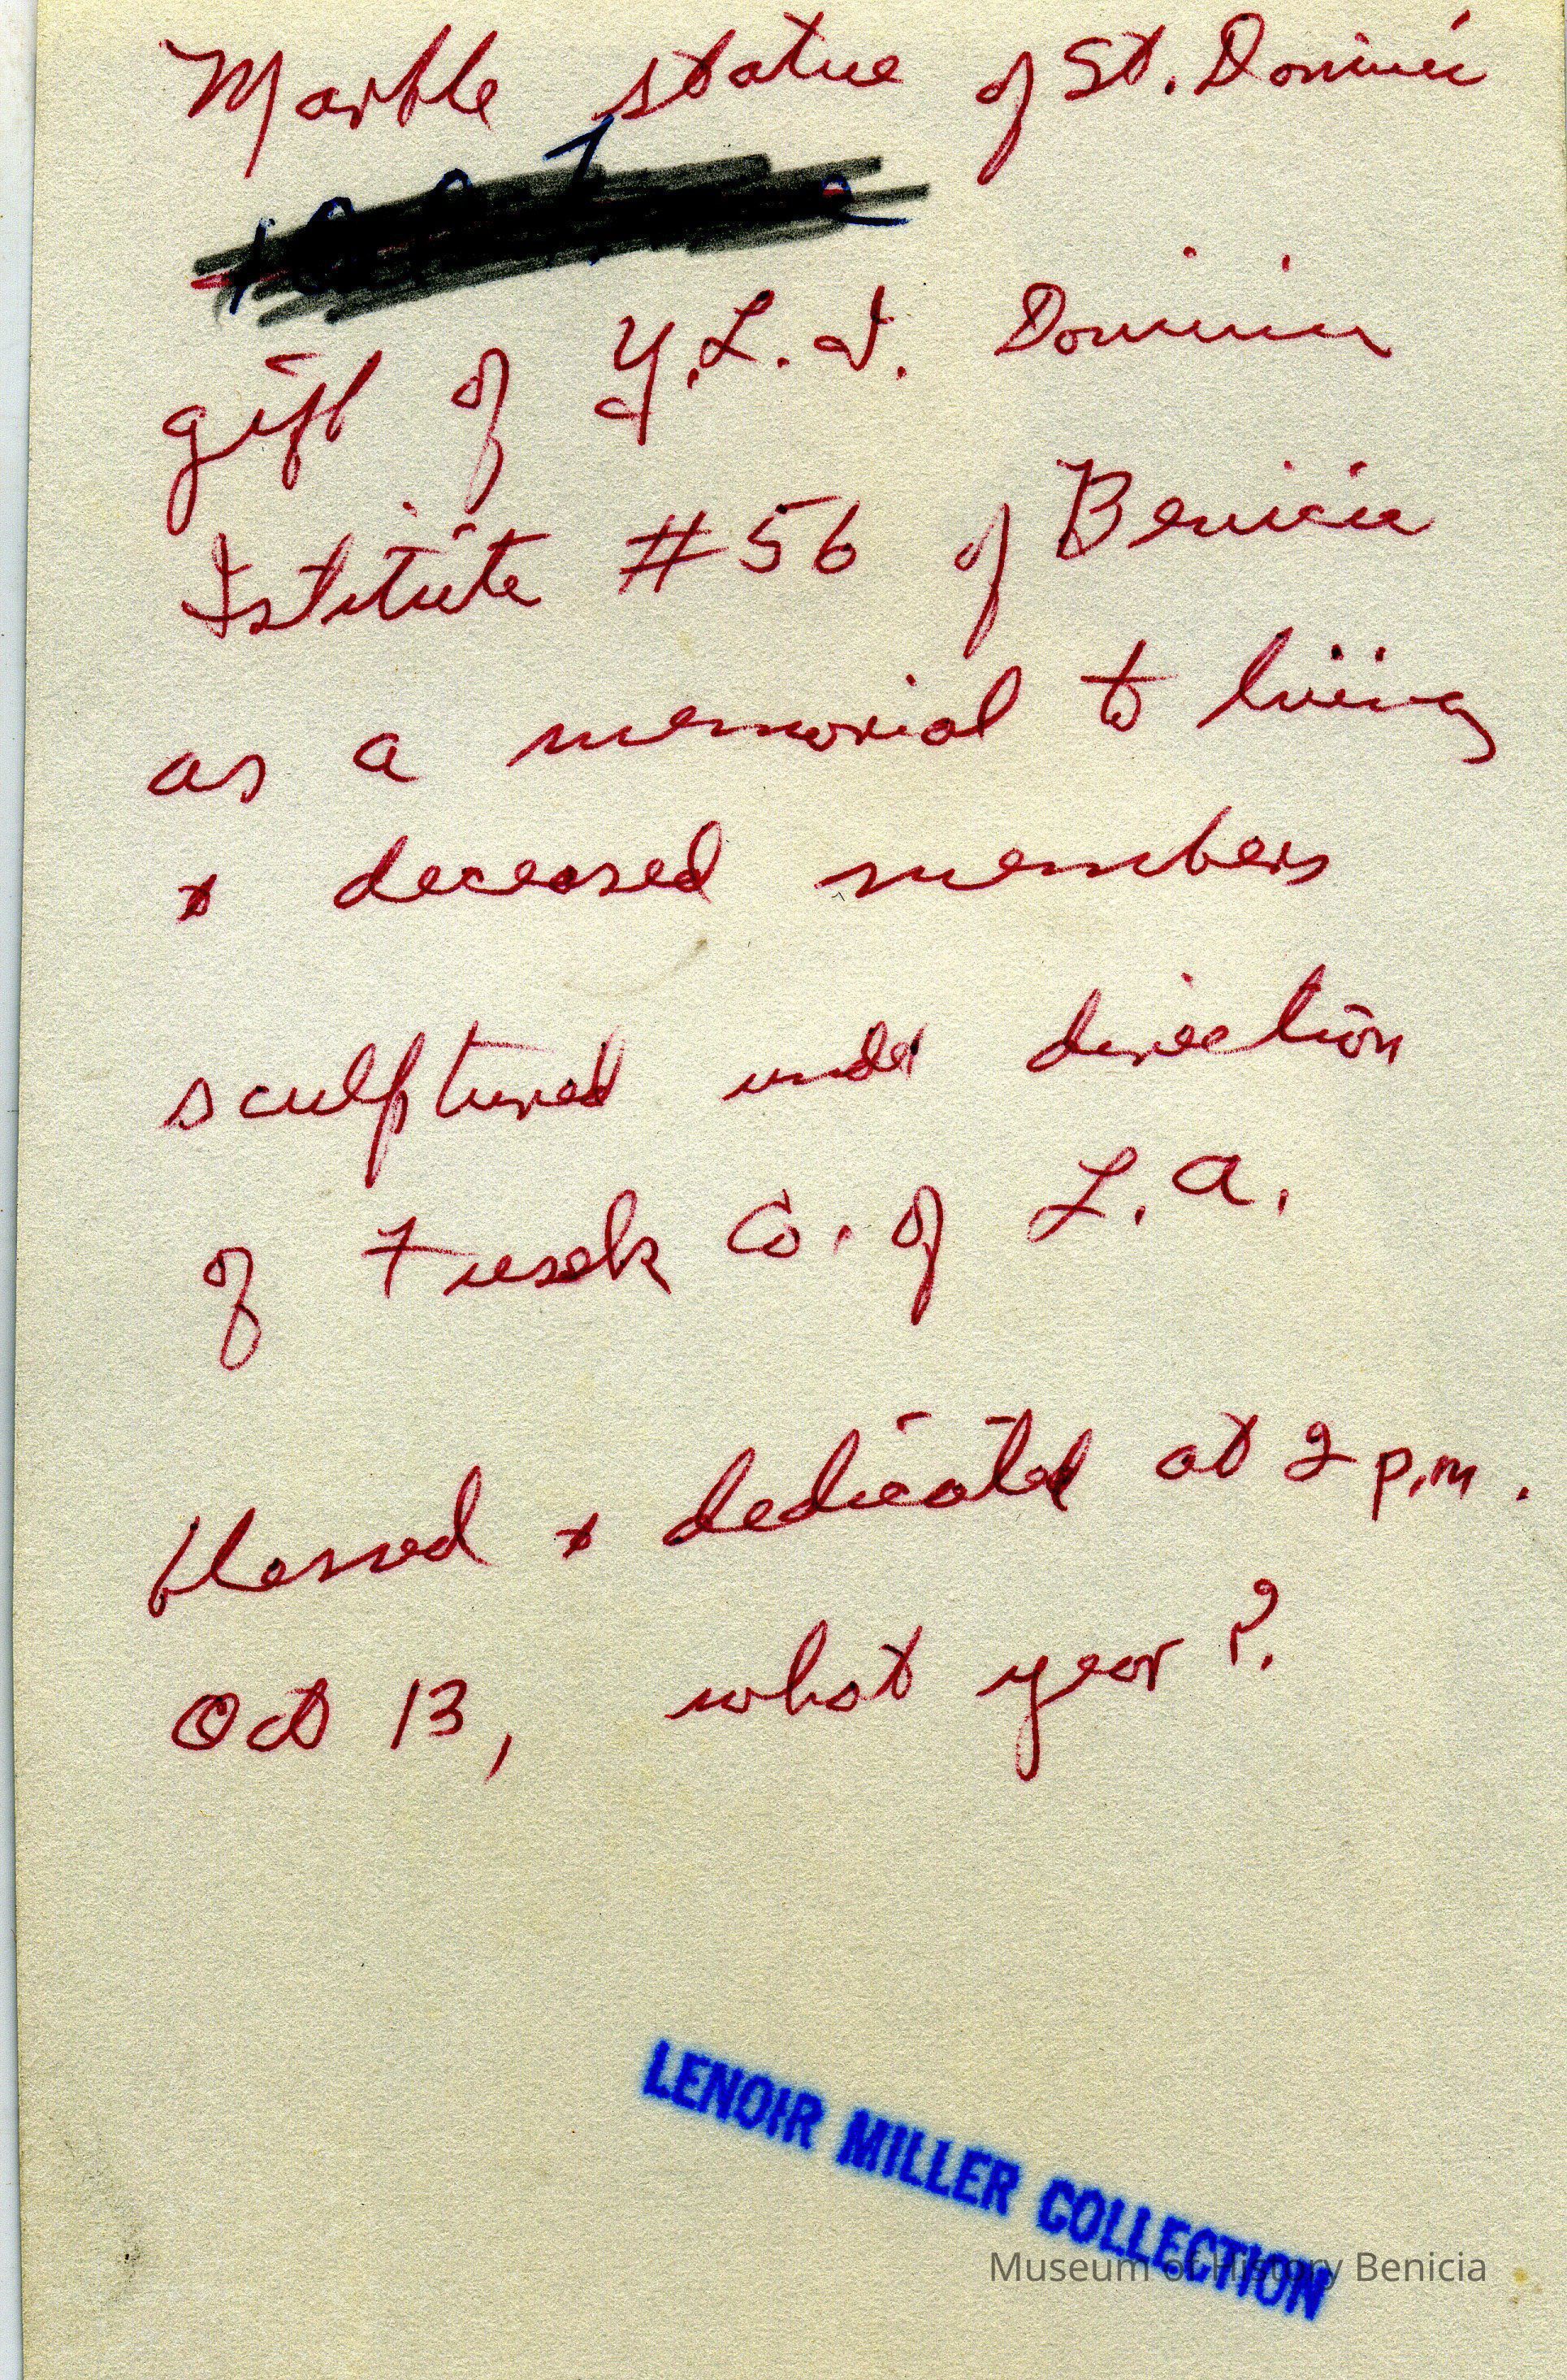 Marble statue of St. Dominic
gift of Y.L.I. Dominican
Istitute #56 of Benicia
as a memorial to living
& deceased members
sculptured under direction
of Fusek Co. of L.A.
blessed & dedicated at 2 p.m.
Oct 13, what year?
LENOIR MILLER COLLECTION
Museum of History Benicia